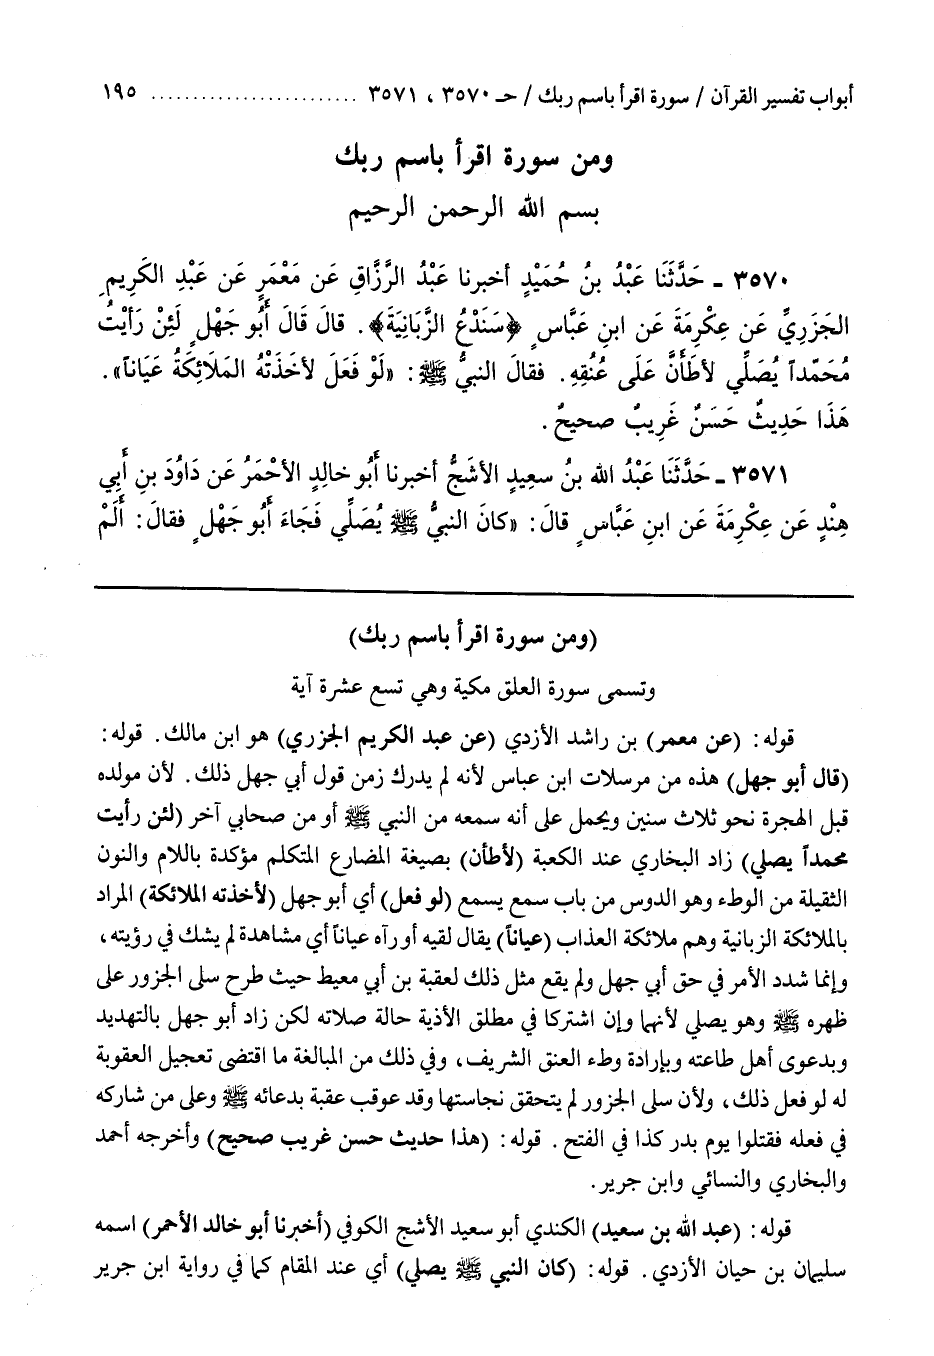 أبواب تفسير القرآن / سورة اقرأ باسم ربك / حـ ٣٥٧٠ ، ٣٥٧١ ......................... ١٩٥
ومن سورة اقرأ باسم ربك
بسم الله الرحمن الرحيم
٣٥٧٠ ـ حَدَّثَنَا عَبْدُ بنُ حُمَيْدٍ أخبرنا عَبْدُ الرَّزَّاقِ عَن مَعْمَرٍ عَن عَبْدِ الكَرِيمِ
الجَزَرِيِّ عَن عِكْرِمَةَ عَن ابنِ عَبَّاسٍ ﴿سَنَدْعُ الزَّبَانِيَةَ﴾. قالَ قَالَ أَبُو جَهْلٍ لَئِنْ رَأيْتُ
مُحَمّداً يُصَلِّي لأطَأَنَّ عَلَى عُنُقِهِ. فقالَ النبيُّ ﷺ: «لَوْ فَعَلَ لأخَذَتْهُ المَلَائِكَةُ عَيَاناً».
هَذَا حَدِيثٌ حَسَنٌ غَرِيبٌ صحيحٌ.
٣٥٧١ ـ حَدَّثَنَا عَبْدُ الله بنُ سعِيدٍ الأشَجُّ أخبرنا أَبُو خالِدٍ الأحْمَرُ عَن دَاوُدَ بنِ أَبِي
هِنْدٍ عَن عِكْرِمَةَ عَن ابنِ عَبَّاسٍ قالَ: «كانَ النبيُّ ﷺ يُصَلِّي فَجَاءَ أَبُو جَهْلٍ فقالَ: أَلَمْ
(ومن سورة اقرأ باسم ربك)
وتسمى سورة العلق مكية وهي تسع عشرة آية
قوله: (عن معمر) بن راشد الأزدي (عن عبد الكريم الجزري) هو ابن مالك. قوله:
(قال أبو جهل) هذه من مرسلات ابن عباس لأنه لم يدرك زمن قول أبي جهل ذلك. لأن مولده
قبل الهجرة نحو ثلاث سنين ويحمل على أنه سمعه من النبي ﷺ أو من صحابي آخر (لئن رأيت
محمداً يصلي) زاد البخاري عند الكعبة (لأطأن) بصيغة المضارع المتكلم مؤكدة باللام والنون
الثقيلة من الوطء وهو الدوس من باب سمع يسمع (لو فعل) أي أبو جهل (لأخذته الملائكة) المراد
بالملائكة الزبانية وهم ملائكة العذاب (عياناً) يقال لقيه أو رآه عياناً أي مشاهدة لم يشك في رؤيته،
وإنما شدد الأمر في حق أبي جهل ولم يقع مثل ذلك لعقبة بن أبي معيط حيث طرح سلى الجزور على
ظهره ﷺ وهو يصلي لأنهما وإن اشتركا في مطلق الأذية حالة صلاته لكن زاد أبو جهل بالتهديد
وبدعوى أهل طاعته وبإرادة وطء العنق الشريف، وفي ذلك من المبالغة ما اقتضى تعجيل العقوبة
له لو فعل ذلك، ولأن سلى الجزور لم يتحقق نجاستها وقد عوقب عقبة بدعائه ﷺ وعلى من شاركه
في فعله فقتلوا يوم بدر كذا في الفتح. قوله: (هذا حديث حسن غريب صحيح) وأخرجه أحمد
والبخاري والنسائي وابن جرير.
قوله: (عبد الله بن سعيد) الكندي أبو سعيد الأشج الكوفي (أخبرنا أبو خالد الأحمر) اسمه
سليمان بن حيان الأزدي. قوله: (كان النبي ﷺ يصلي) أي عند المقام كما في رواية ابن جرير